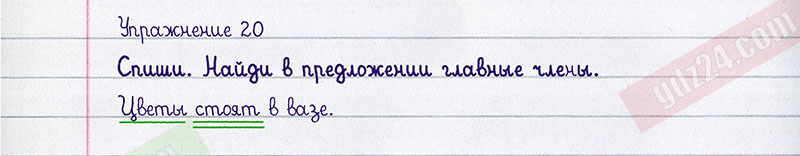 Упражнение 20
Спиши. Найди в предложении главные члены.
Цветы стоят в вазе.
gdz24.com